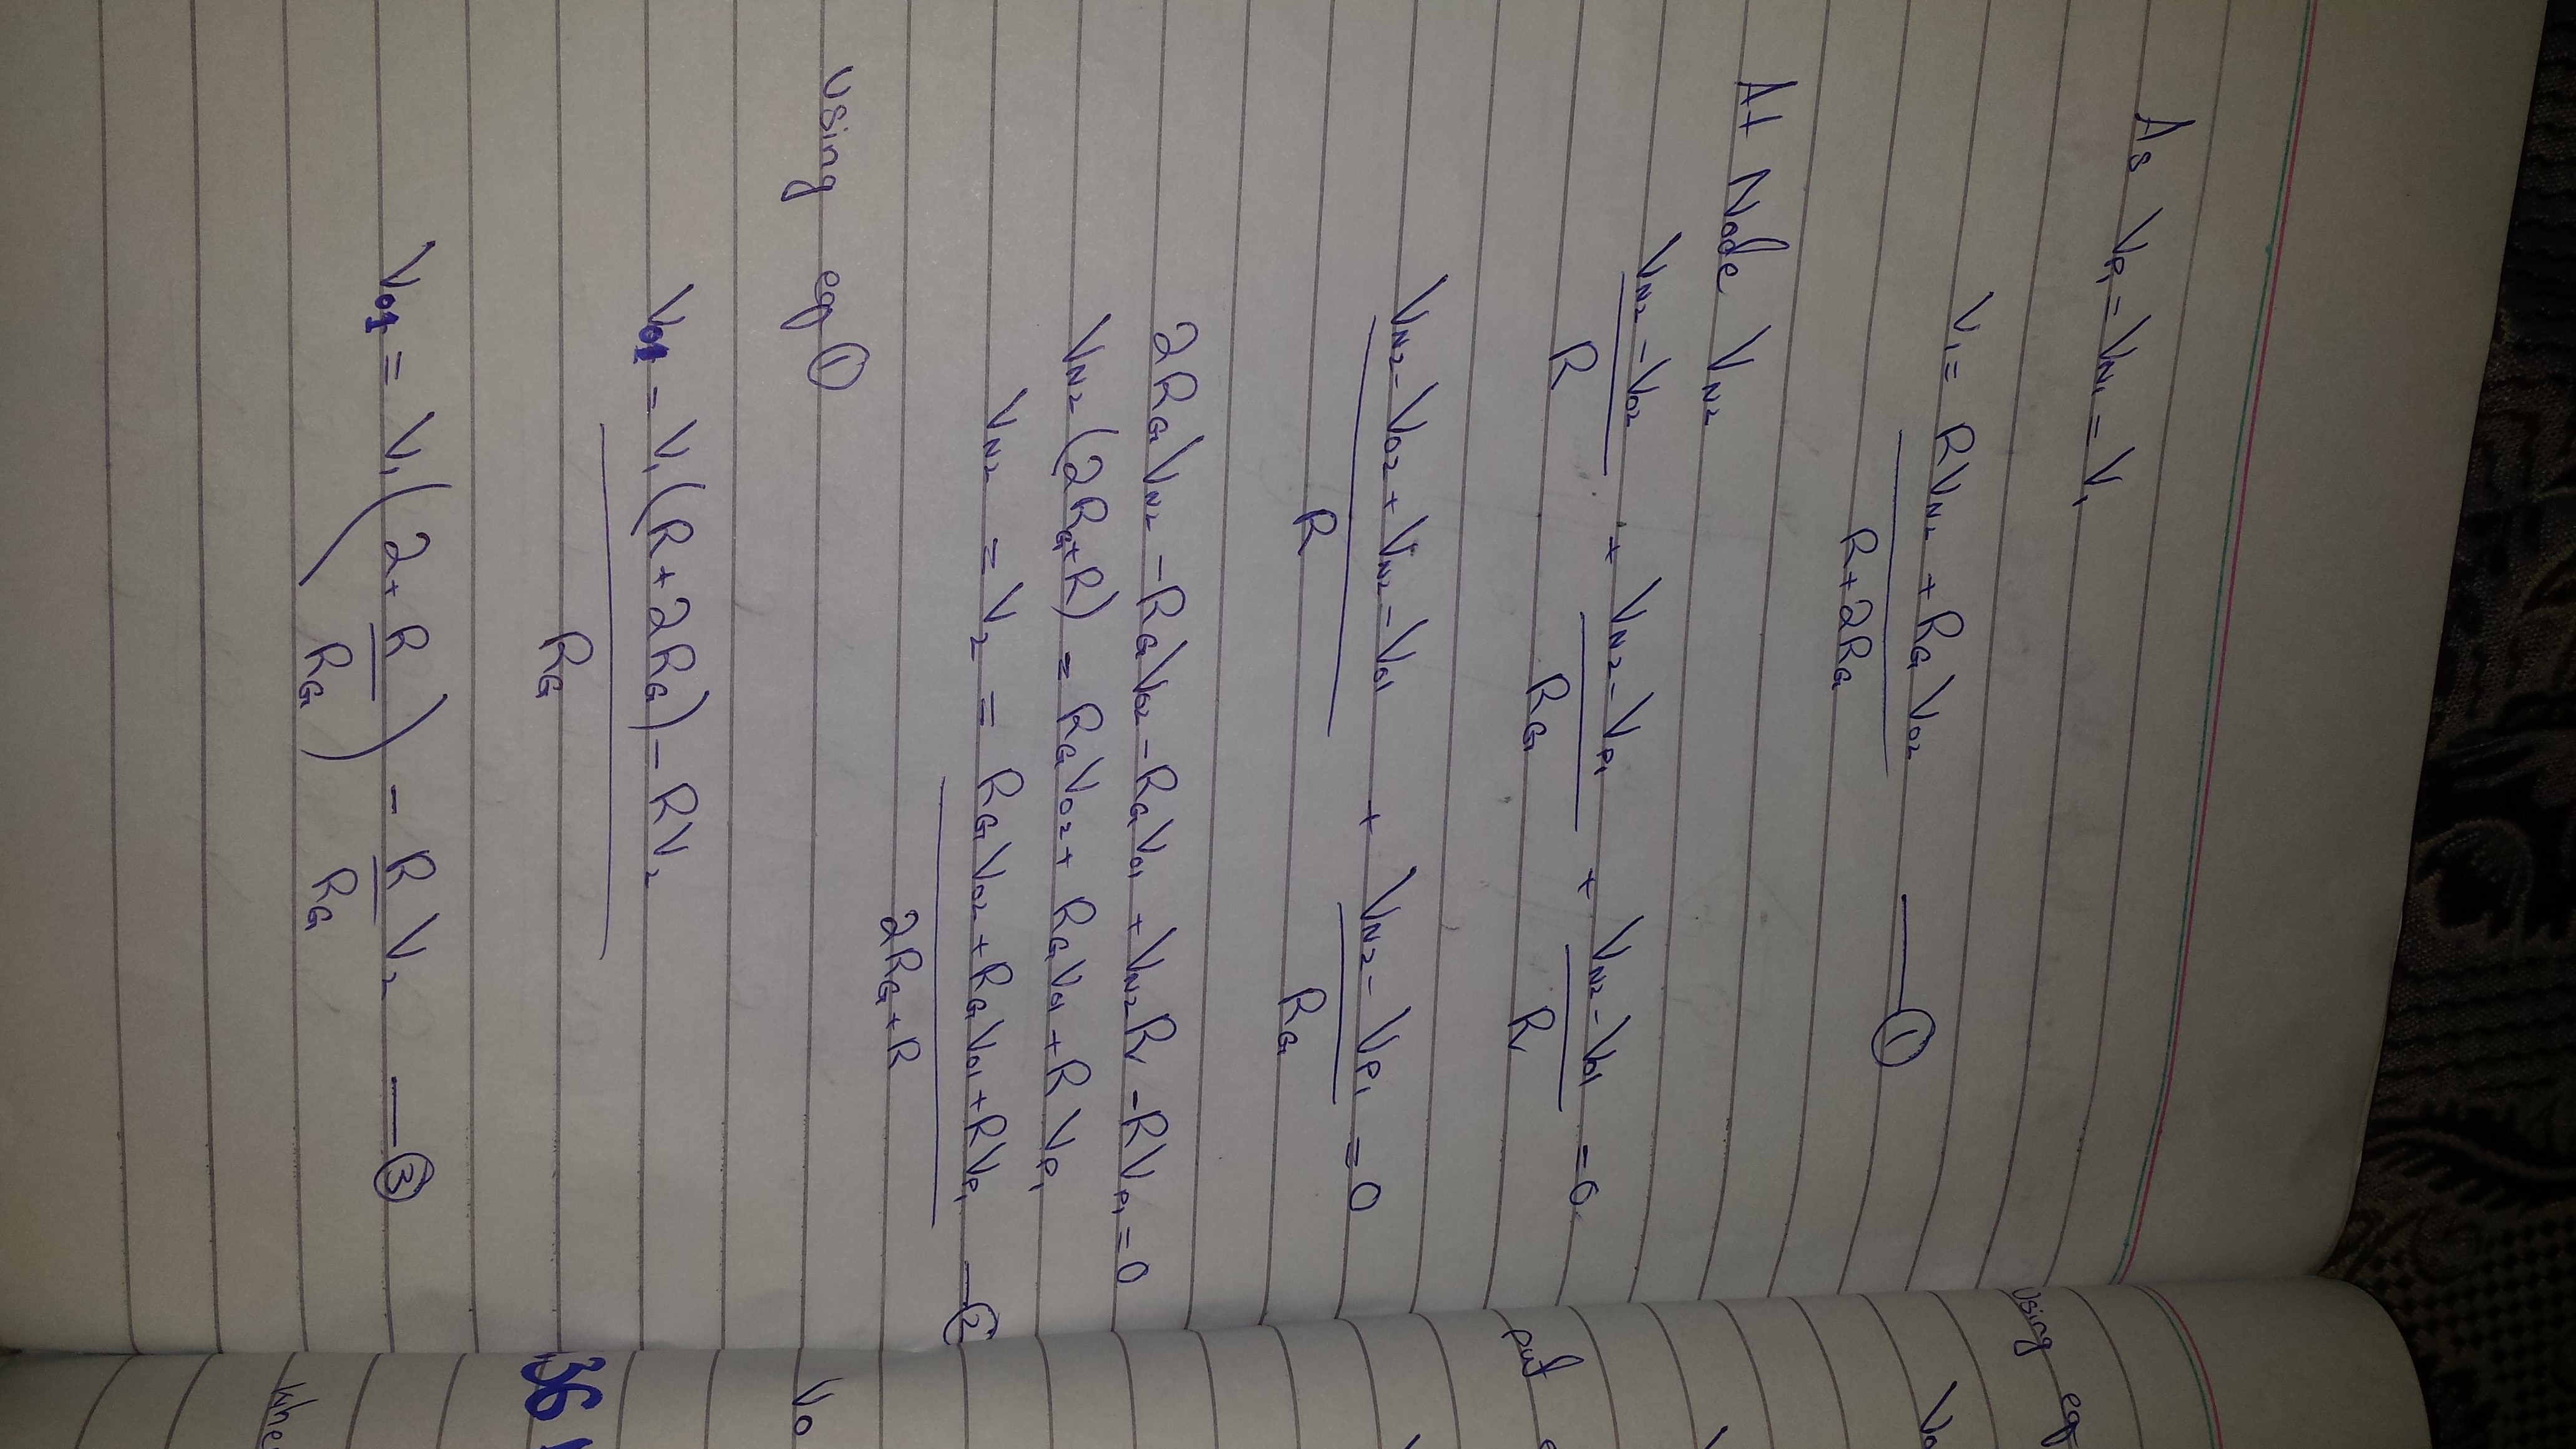 As V_P1 = V_N1 = V_1
V_1 = (R V_N2 + R_G V_02) / (R + 2R_G) — ①
At Node V_N2
(V_N2 - V_02) / R + (V_N2 - V_P1) / R_G + (V_N2 - V_01) / R = 0
(V_N2 - V_02 + V_N2 - V_01) / R + (V_N2 - V_P1) / R_G = 0
2R_G V_N2 - R_G V_02 - R_G V_01 + V_N2 R - R V_P1 = 0
V_N2 (2R_G + R) = R_G V_02 + R_G V_01 + R V_P1
V_N2 = V_2 = (R_G V_02 + R_G V_01 + R V_P1) / (2R_G + R) — ②
using eq ①
V_01 = (V_1 (R + 2R_G) - R V_2) / R_G
V_01 = V_1 (2 + R / R_G) - (R / R_G) V_2 — ③
using eq
put
V_0
36